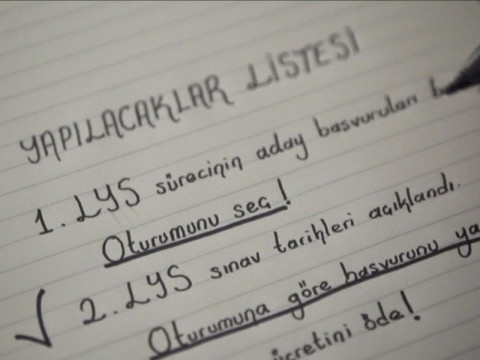 YAPILACAKLAR LİSTESİ
1. LYS sürecinin aday başvuruları
Oturumunu seç!
2. LYS sınav tarihleri açıklandı.
Oturumuna göre başvurunu
ücretini öde!